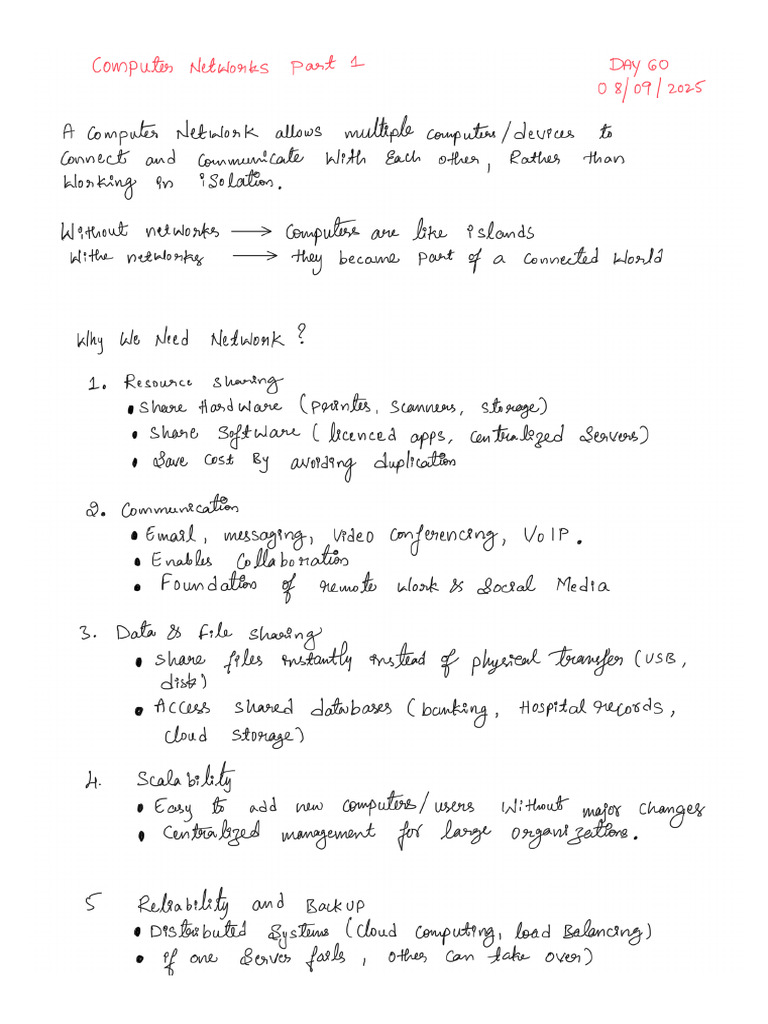 Computer Networks Part 1
DAY 60
08/09/2025
A Computer Network allows multiple computers/devices to
Connect and Communicate With Each other, Rather than
Working in isolation.
Without networks → Computers are like islands
Withe networks → they became part of a connected World
Why We Need Network?
1. Resource Sharing
• Share Hardware (Printes, Scanners, Storage)
• Share Software (licenced apps, centralized Servers)
• Save Cost By avoiding duplication
2. Communication
• Email, messaging, Video Conferencing, VoIP.
• Enables Collaboration
• Foundation of remote Work & Social Media
3. Data & File Sharing
• Share files instantly instead of physical transfer (USB,
disk)
• Access shared databases (banking, Hospital records,
cloud storage)
4. Scalability
• Easy to add new computers/users Without major changes
• Centralized management for large organizations.
5 Reliability and Backup
• Distributed Systems (Cloud Computing, load Balancing)
• if one Server fails, other can take over)